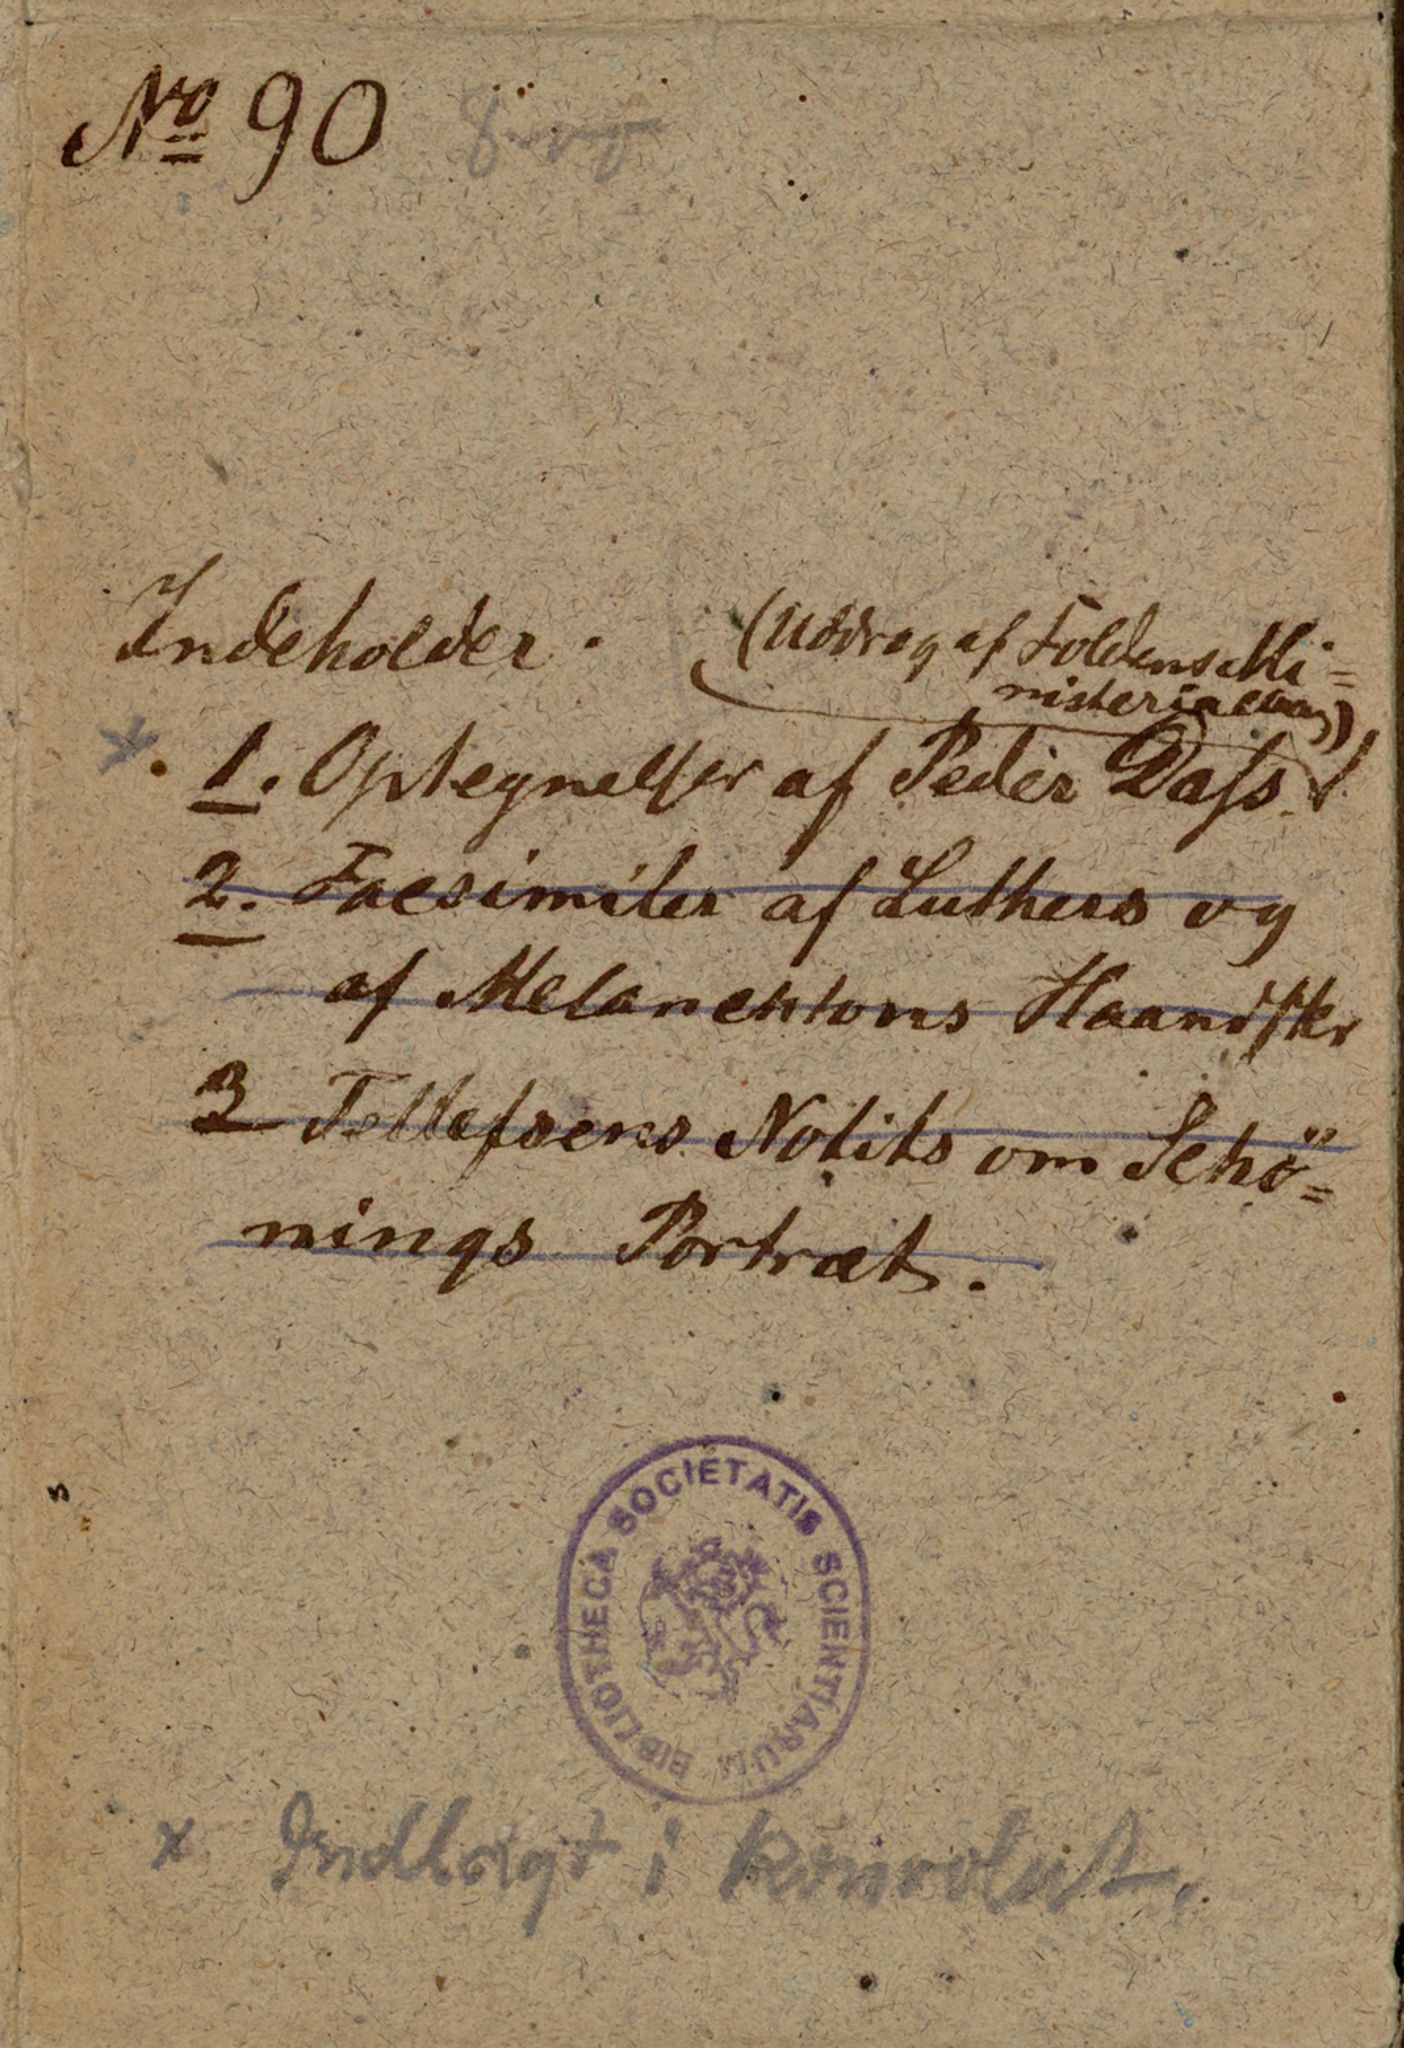 No 90
Indeholder.
(Uddrag af Foldens Mi=
nisterialbog)
x 1. Optegnelser af Peder Dass.
2. Facsimiler af Luthers og
af Melanchtons Haandskr
3 Tellefsens Notits om Schö=
nings Portræt.
BIBLIOTHECA SOCIETATIS SCIENTIARUM
x Indlagt i Konvolut.